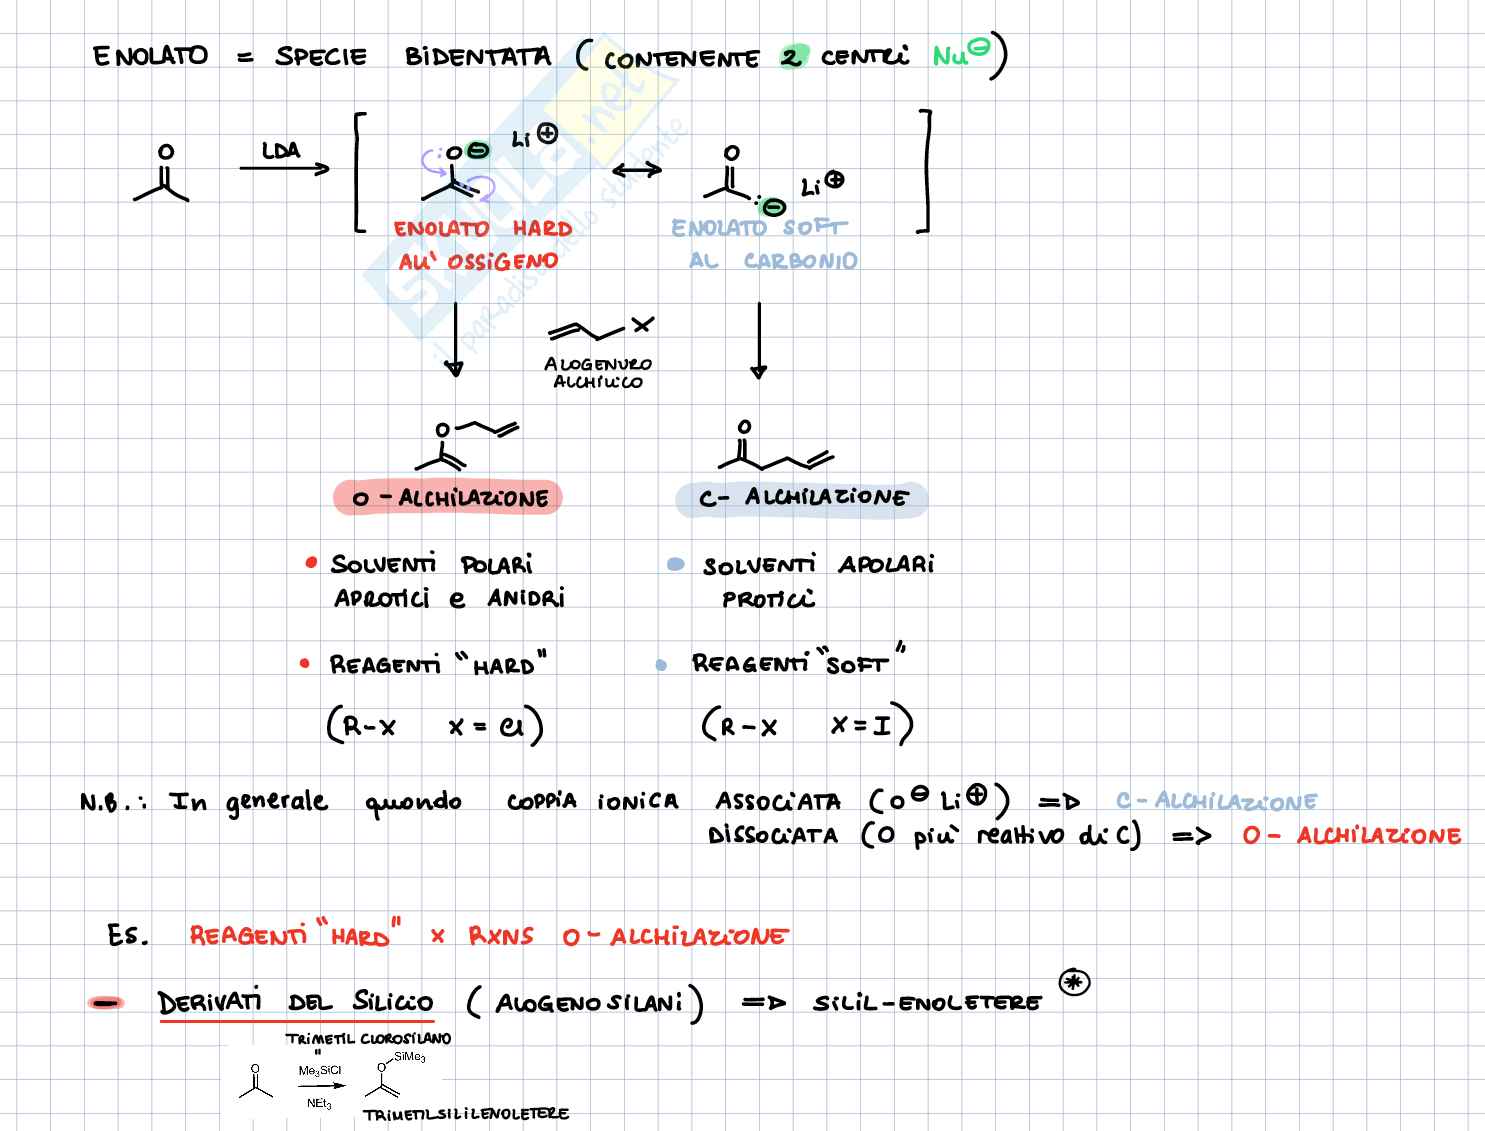 ENOLATO = SPECIE BIDENTATA (CONTENENTE 2 CENTRI Nu⊖)
O LDA [ O ⊖ Li ⊕ ↔ O ⊖ Li ⊕ ]
ENOLATO HARD ALL' OSSIGENO
ENOLATO SOFT AL CARBONIO
X
ALOGENURO
ALCHILICO
O O
O - ALCHILAZIONE C- ALCHILAZIONE
• SOLVENTI POLARI APROTICI e ANIDRI
• SOLVENTI APOLARI PROTICI
• REAGENTI "HARD" • REAGENTI "SOFT"
(R-X X = Cl) (R-X X = I)
N.B.: In generale quando COPPIA IONICA ASSOCIATA (O⊖ Li⊕) => C-ALCHILAZIONE
DISSOCIATA (O più reattivo di C) => O- ALCHILAZIONE
Es. REAGENTI "HARD" x RXNS O-ALCHILAZIONE
- DERIVATI DEL SILICIO (ALOGENOSILANI) => SILIL-ENOLETERE ⊛
TRIMETIL CLOROSILANO
"
O Me₃SiCl O SiMe₃
NEt₃
TRIMETILSILILENOLETERE
skuola.net
il paradiso dello studente